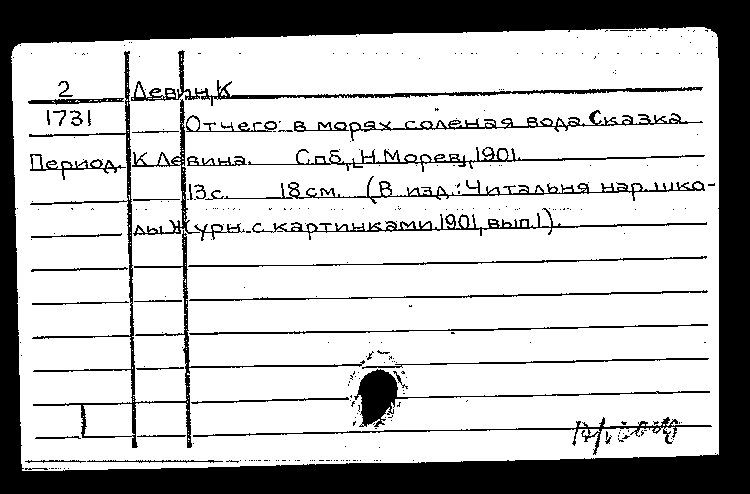 2 Левин, К
1731 Отчего в морях соленая вода. Сказка
Период. К Левина. Спб, Н. Морев, 1901.
13 с. 18 см. (В изд.: Читальня нар. шко-
лы Журн. с картинками. 1901, вып. 1).